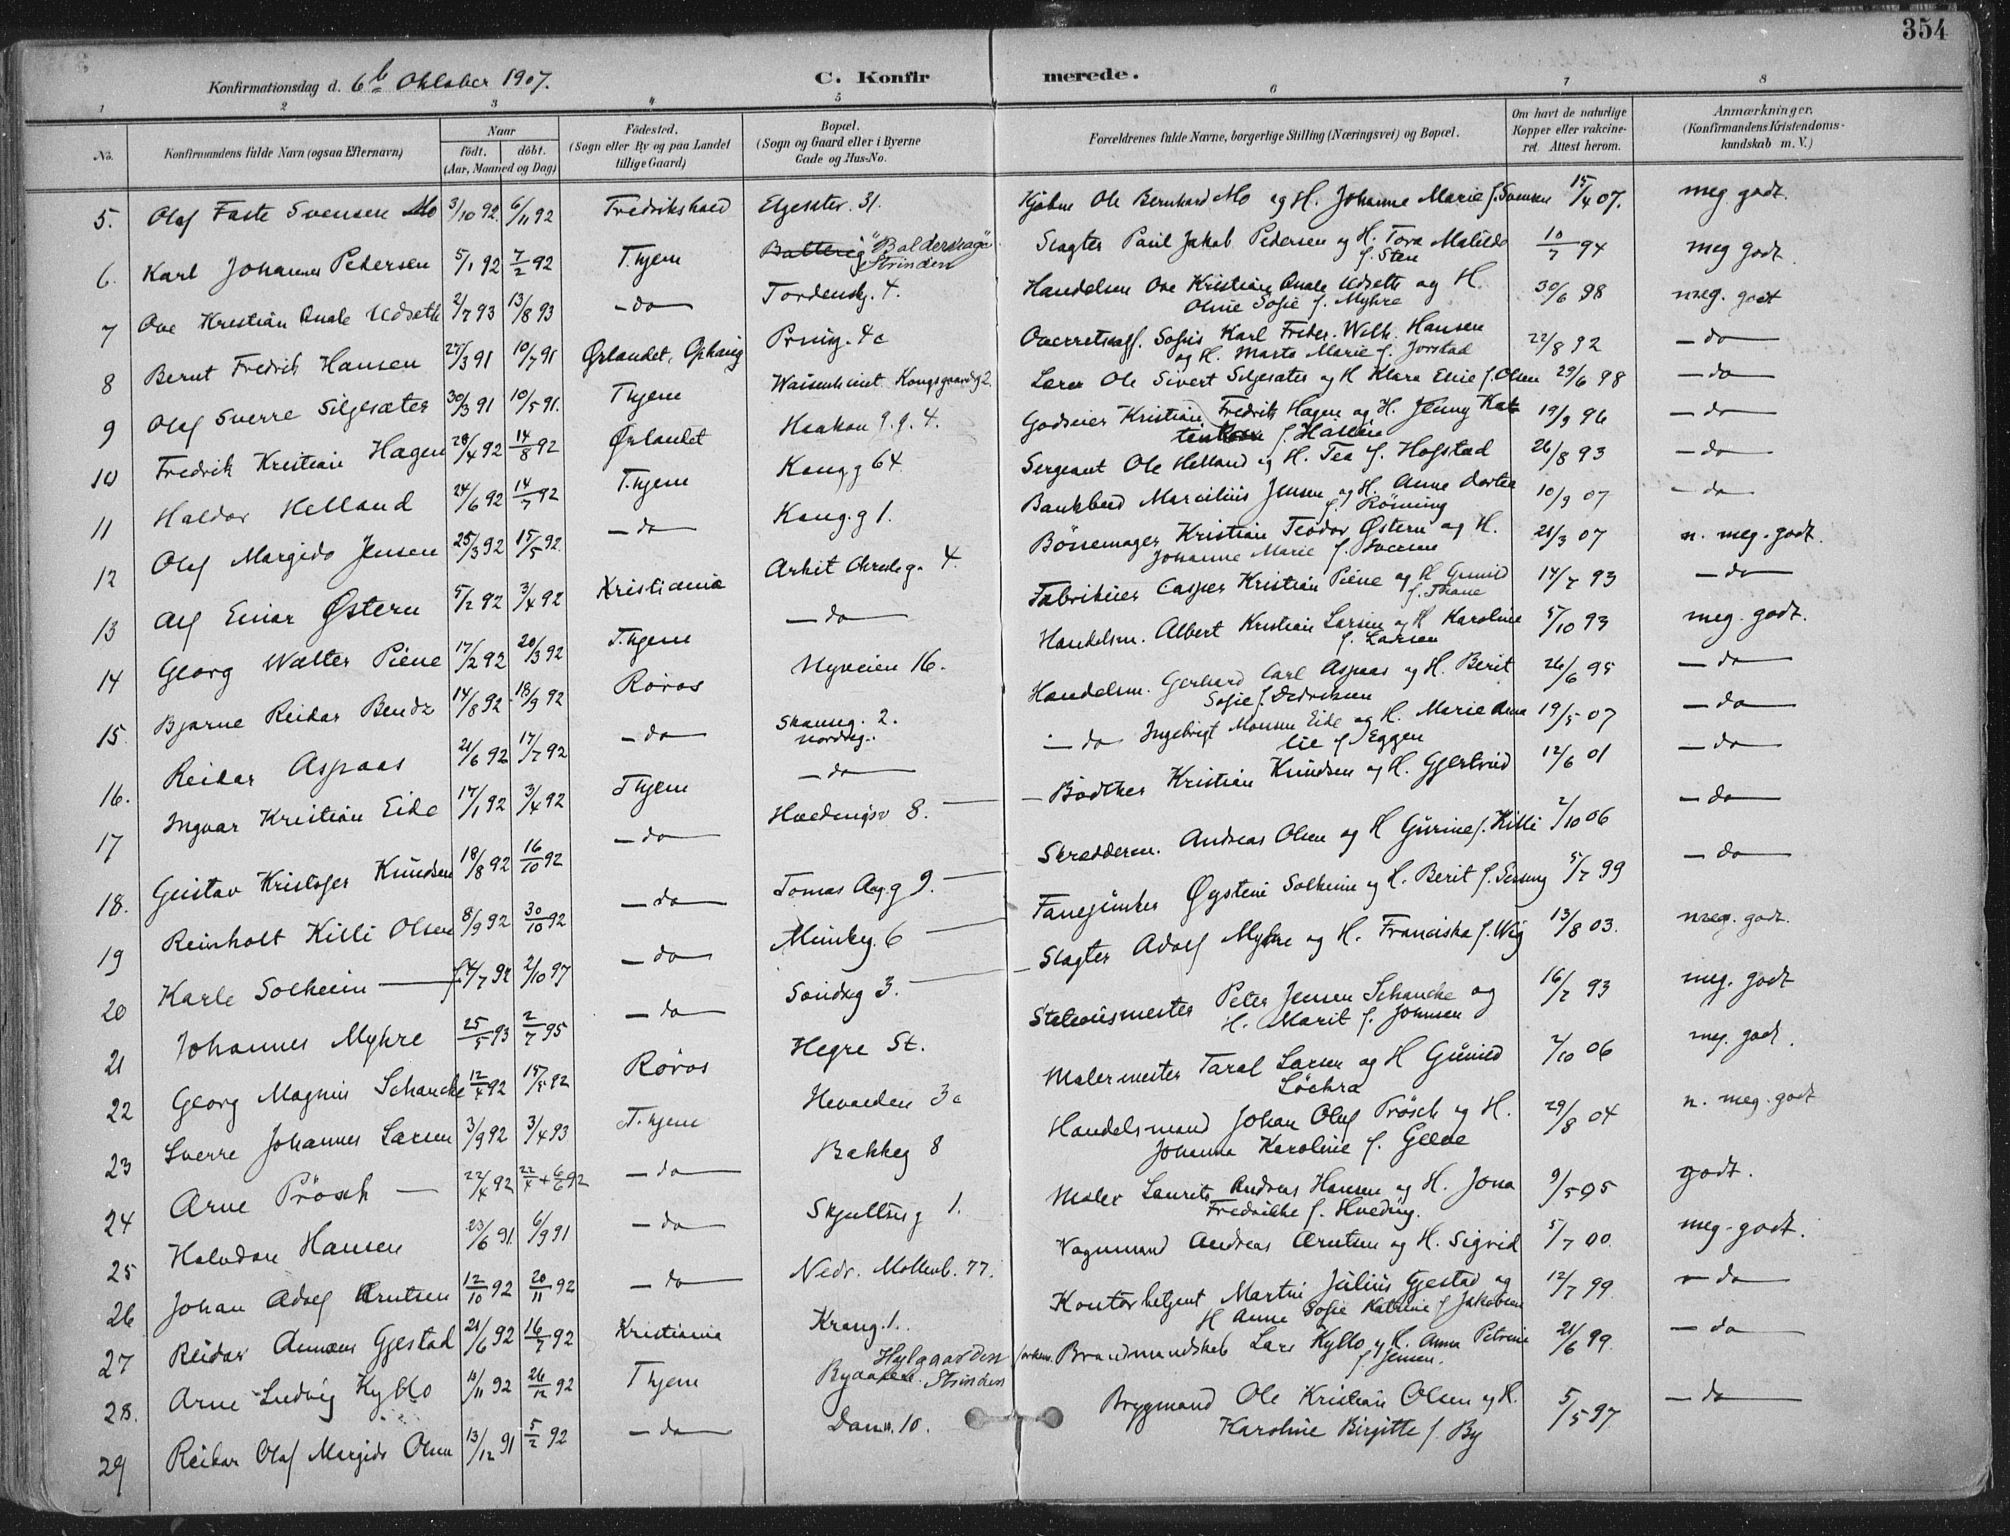 354
Konfirmationsdag d. 6te Oktober 1907.
C. Konfirmerede.
1 2 3 4 5 6 7 8
No.
Konfirmandens fulde Navn (ogsaa Efternavn)
Naar
født. døbt.
(Aar, Maaned og Dag)
Fødested.
(Sogn eller By og paa Landet
tillige Gaard)
Bopæl.
(Sogn og Gaard eller i Byerne
Gade og Hus-No.
Forældrenes fulde Navne, borgerlige Stilling (Næringsvei) og Bopæl.
Om havt de naturlige
Kopper eller vakcine-
ret. Attest herom.
Anmærkninger.
(Konfirmandens Kristendoms-
kundskab m. V.)
5. Olaf Faste Svensen Mo 3/10 92 6/11 92 Fredrikshald Elgesäter. 31. Ole Bernhard Mo og H. Johanne Marie f. Svensen 15/4 07. meg godt.
6. Karl Johannes Pedersen 5/1 92 7/2 92 T.hjem "Baldershage" Strinden Slagter Paul Jakob Pedersen og H. Tora Matilde f. Sten 10/7 94 meg godt.
7 Ove Kristian Quale Udseth 2/7 93 13/8 93 - do - Tordensk. 4. Handelsm Ove Kristian Quale Udseth og H. Oline Sofie f. Myhre 30/6 98 meg. godt
8 Bernt Fredrik Hansen 27/3 91 10/7 91 Ørlandet, Ophaug Prinsg. 4c Overretssagf. Karl Freder. Wilh. Hansen og H. Marta Marie f. Jørstad 22/8 92 - do
9 Olaf Sverre Silgesæter 30/3 91 10/5 91. Thjem Waisenhuset Kongsgaardg 2. Lærer Ole Sivert Silgesæter og H Klara Elise f. Olsen 29/6 98 - do -
10 Fredrik Kristian Hagen 28/4 92 14/8 92 Ørlandet Haakon 7. g. 4. Godseier Kristian Fredrik Hagen og H. Jenny f. Hallein 19/9 96 - do -
11 Haldor Helland 24/6 92 14/7 92 T.hjem Kongg 64 Sergeant Ole Helland og H. Tea f. Hofstad 26/8 93 - do -
12 Olaf Margido Jensen 25/3 92 15/5 92. - do - Kong.g 1. Bankbud Marcelius Jensen og H. Anne Dortea f. Rönning 10/9 07 - do
13 Alf Einar Østern 5/2 92 3/4 92 Kristiania Arkit Christieg. 4. Bössemager Kristian Teodor Østern og H. Johanne Marie f. Iversen 21/3 07 n. meg. godt.
14 Georg Walter Piene 17/2 92 20/3 92 T.hjem - do - Fabrikeier Casper Kristian Piene og H Gunild f. Thane 14/7 93 - do
15. Bjarne Reidar Bendz 14/8 92 18/9 92 Röros Nyveien 16. Handelsm. Albert Kristian Larsen og H Karoline f. Larsen 5/10 93 meg. godt.
16. Reidar Aspaas 21/6 92 17/7 92 - do - 2. Nordreg. Handelsm. Gerhard Carl Aspaas og H. Berit Sofie f. Dedriksen 26/6 95 - do
17 Ingvar Kristian Eide 17/1 92 3/4 92 Thjem - do - - do Ingebrigt Monsen Eide og H. Marie Amalie f. Eggen 19/5 07 - do -
18. Gustav Kristofer Knudsen 18/8 92 16/10 92 - do - Hvedingsv 8. - Bödtker Kristian Knudsen og H. Gjertrud 12/6 01 - do -
19 Reinholt Killi Olsen 8/9 92 30/10 92 - do - Tomas Ang.g 9. - Skrædderm. Andreas Olsen og H Gurine f. Killi 2/10 06 - do -
20 Karle Solheim - 14/7 92 2/10 97 - do - Munkeg. 6 - Fanejunker Øystein Solheim og H. Berit f. 5/7 99 - do -
21 Johannes Myhre 25/5 93 2/7 95 - do - Sandveg 3. - Slagter Adolf Myhre og H. Franciska f. Wig 13/8 03. meg. godt.
22 Georg Magnus Schancke 12/4 92 15/5 92 Röros Hegre St. Stationsmester Peter Jensen Schancke og H. Marit f. Johnsen 16/7 93 meg. godt
23 Sverre Johannes Larsen 3/9 92 3/4 93 T.hjem Hevaeden 3c Malermester Taral Larsen og H Gunild Löchra 2/10 06 meg. godt.
24 Arne Prösch - 22/4 92 22/4 + 6/6 92 - do - Bakkeg 8 Handelsmand Johan Olaf Prösch og H. Johanna Karoline f. Geeve 29/8 04 n. meg. godt
25 Halvdan Hansen 23/6 91. 6/9 91 - do - Skjultng 1. Maler Laurits Andreas Hansen og H. Jona Fredrikke f. Hveding. 9/5 05 godt.
26 Johan Adolf Arntsen 12/10 92 20/11 92 - do - Nedr. Mollenb. 77. Vognmand Andreas Arntsen og H. Sigrid 5/7 00. meg. godt.
27 Reidar Gjestad 21/6 92 16/7 92 Kristiania Krang. 1. Kontorbetjent Martin Julius Gjestad og H Anne Sofie Katrine f. Jakobsen 12/7 99. - do -
28. Arne Ludvig Kyllo 10/11 92 26/12 92 Thjem Hylgaarden Strinden Brandmandskab Lars Kyllo og H. Anna Petrine f. Jensen. 21/6 99. - do
29 Reidar Olaf Margido Olsen 13/12 91 5/2 92 - do - Dan.v. 10. Bryggmand Ole Kristian Olsen og H. Karoline Birgitte f. By 5/5 97 - do -